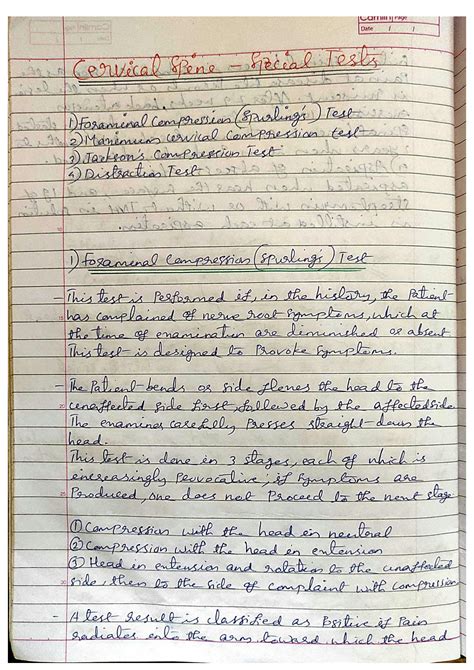 Camlin Page
Date / /
Cervical Spine - Special Tests
1) Foraminal Compression (Spurling's) Test
2) Maximum cervical Compression test
3) Jackson's Compression Test
4) Distraction Test
1) Foraminal Compression (Spurling's) Test
- This test is Performed if, in the history, the Patient
has complained of nerve root symptoms, which at
the time of examination are diminished or absent
This test is designed to Provoke Symptoms.
- The Patient bends or side flexes the head to the
unaffected side first, followed by the affected side
The examiner carefully Presses straight down the
head.
This test is done in 3 stages, each of which is
increasingly Provocative; if symptoms are
Produced, one does not Proceed to the next stage
① Compression with the head in neutral
② Compression with the head in extension
③ Head in extension and rotation to the unaffected
side, then to the side of complaint with compression
- A test result is classified as Positive if Pain
radiates into the arm toward which the head